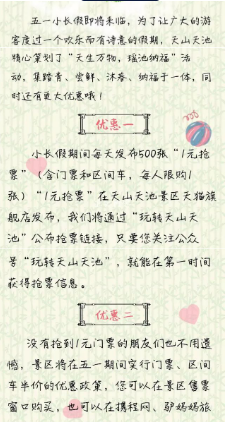 五一小长假即将来临，为了让广大的游
客度过一个欢乐而有诗意的假期，天山天池
精心策划了“天生万物，瑶池纳福”活
动，集踏青、尝鲜、沐春、纳福于一体，同
时还有更大优惠哦！
优惠一
小长假期间每天发布500张“1元抢
票”（含门票和区间车，每人限购1
张）“1元抢票”在天山天池景区天猫旗
舰店发布，我们将通过“玩转天山天
池”公布抢票链接，只要您关注公众
号“玩转天山天池”，就能在第一时间
获得抢票信息。
优惠二
没有抢到1元门票的朋友们也不用遗
憾，景区将在五一期间实行门票、区间
车半价的优惠政策，您可以在景区售票
窗口购买，也可以在携程网、驴妈妈旅